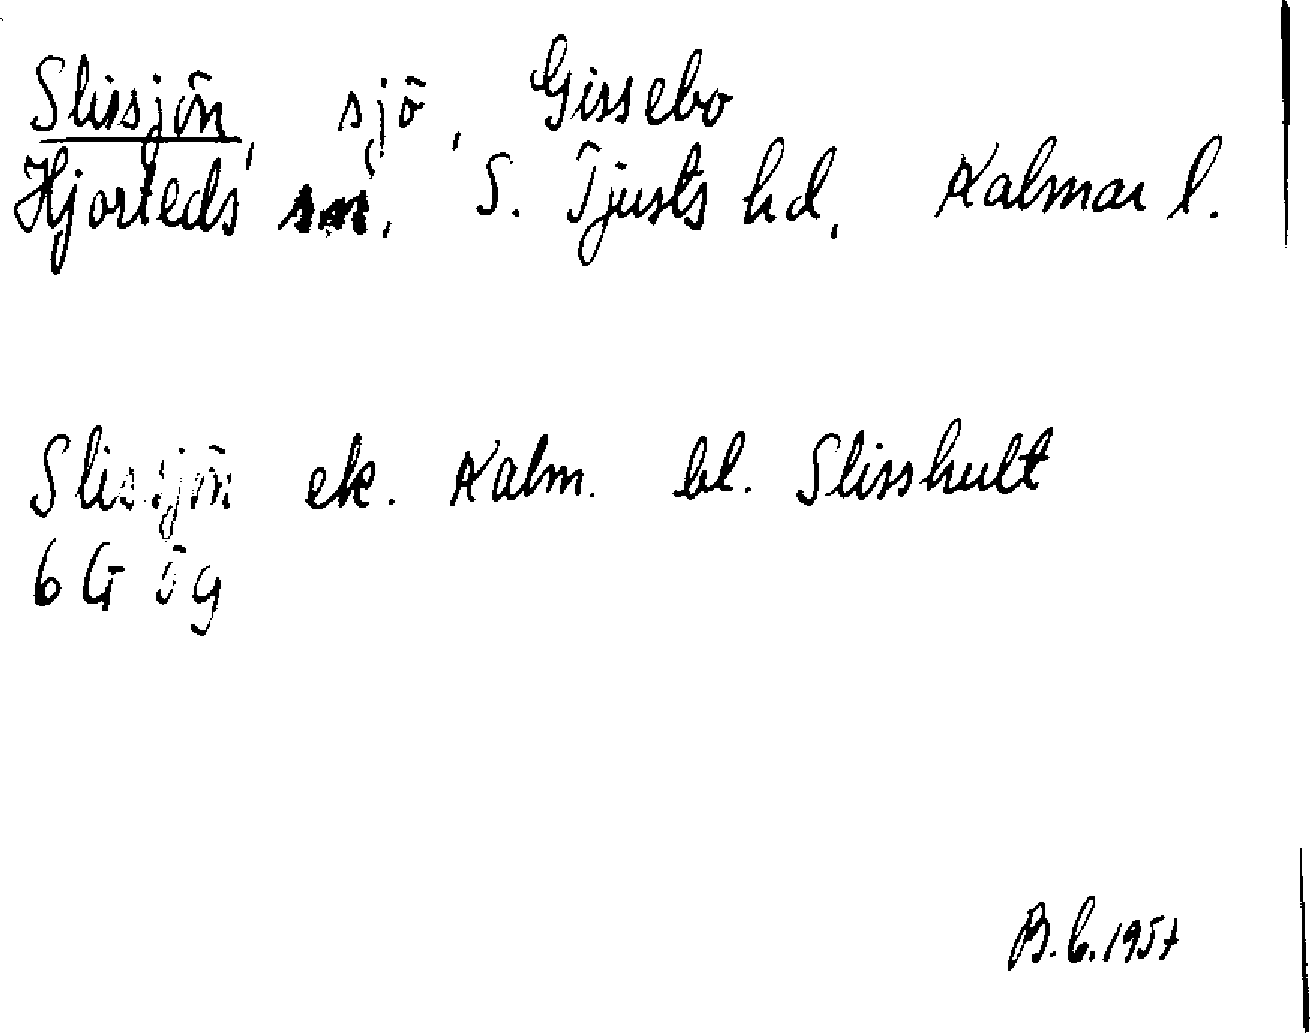 Slissjön, sjö, Gissebo
Hjorteds sn, S. Tjusts hd, Kalmar l.
Slissjön ek. Kalm. bl. Slisshult
6 G ög
B.E. 1957